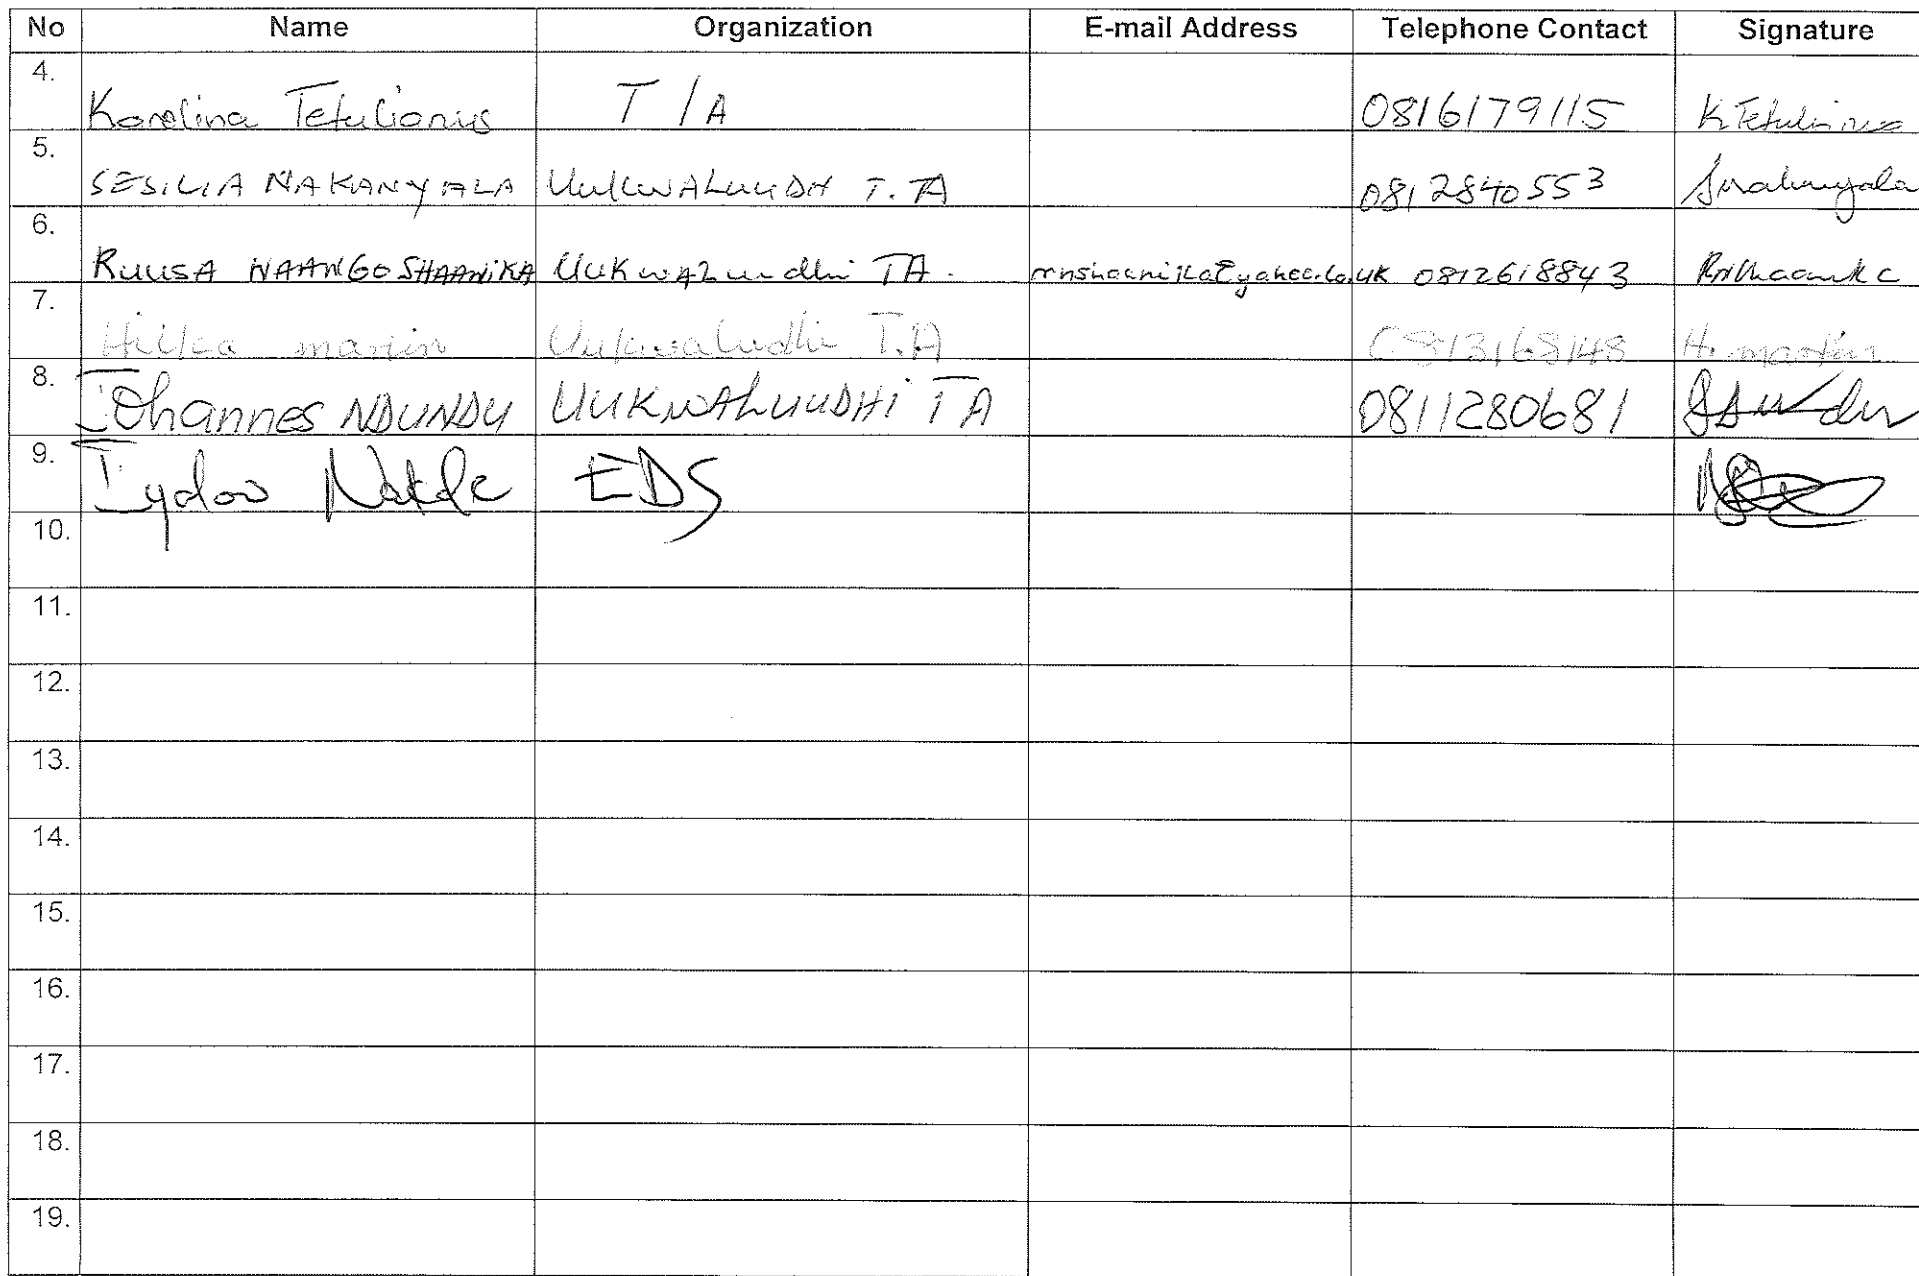 No Name Organization E-mail Address Telephone Contact Signature
4. Karolina Tetulianus T/A 0816179115 K Tetulianus
5. SESILIA NAKANYALA UUKWALUUDH T.TA 0812840553 Snakanyala
6. RUUSA NAANGOSHAANIKA UUKwaLuudhi TA. rnshaanika@yahoo.co.uk 0812618843
7. Hilka martin Uukwaludhi T.A 0813168148 H. martin
8. Johannes NDUNDU UUKWALUUDHI TA 0811280681
9. EDS
10.
11.
12.
13.
14.
15.
16.
17.
18.
19.